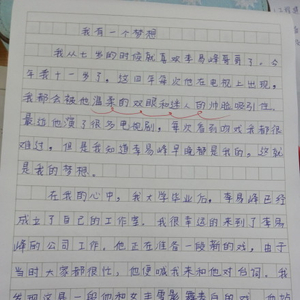 我有一个梦想
我从七岁的时候就喜欢李易峰哥哥了，今
年我十一岁了，这四年每次他在电视上出现，
我都会被他温柔的双眼和迷人的帅脸吸引住。
最近他演了很多电视剧，每次看到吻戏我都很
难过，但是我知道李易峰早晚都是我的，这就
是我的梦想。
在我的心中，我大学毕业后，李易峰已经
成立了自己的工作室。我很幸运的来到了李易
峰的公司工作。他正在准备一段新的戏，由于
当时大家都很忙，他便喊我来和他对台词。我
发现这是一段他和女主